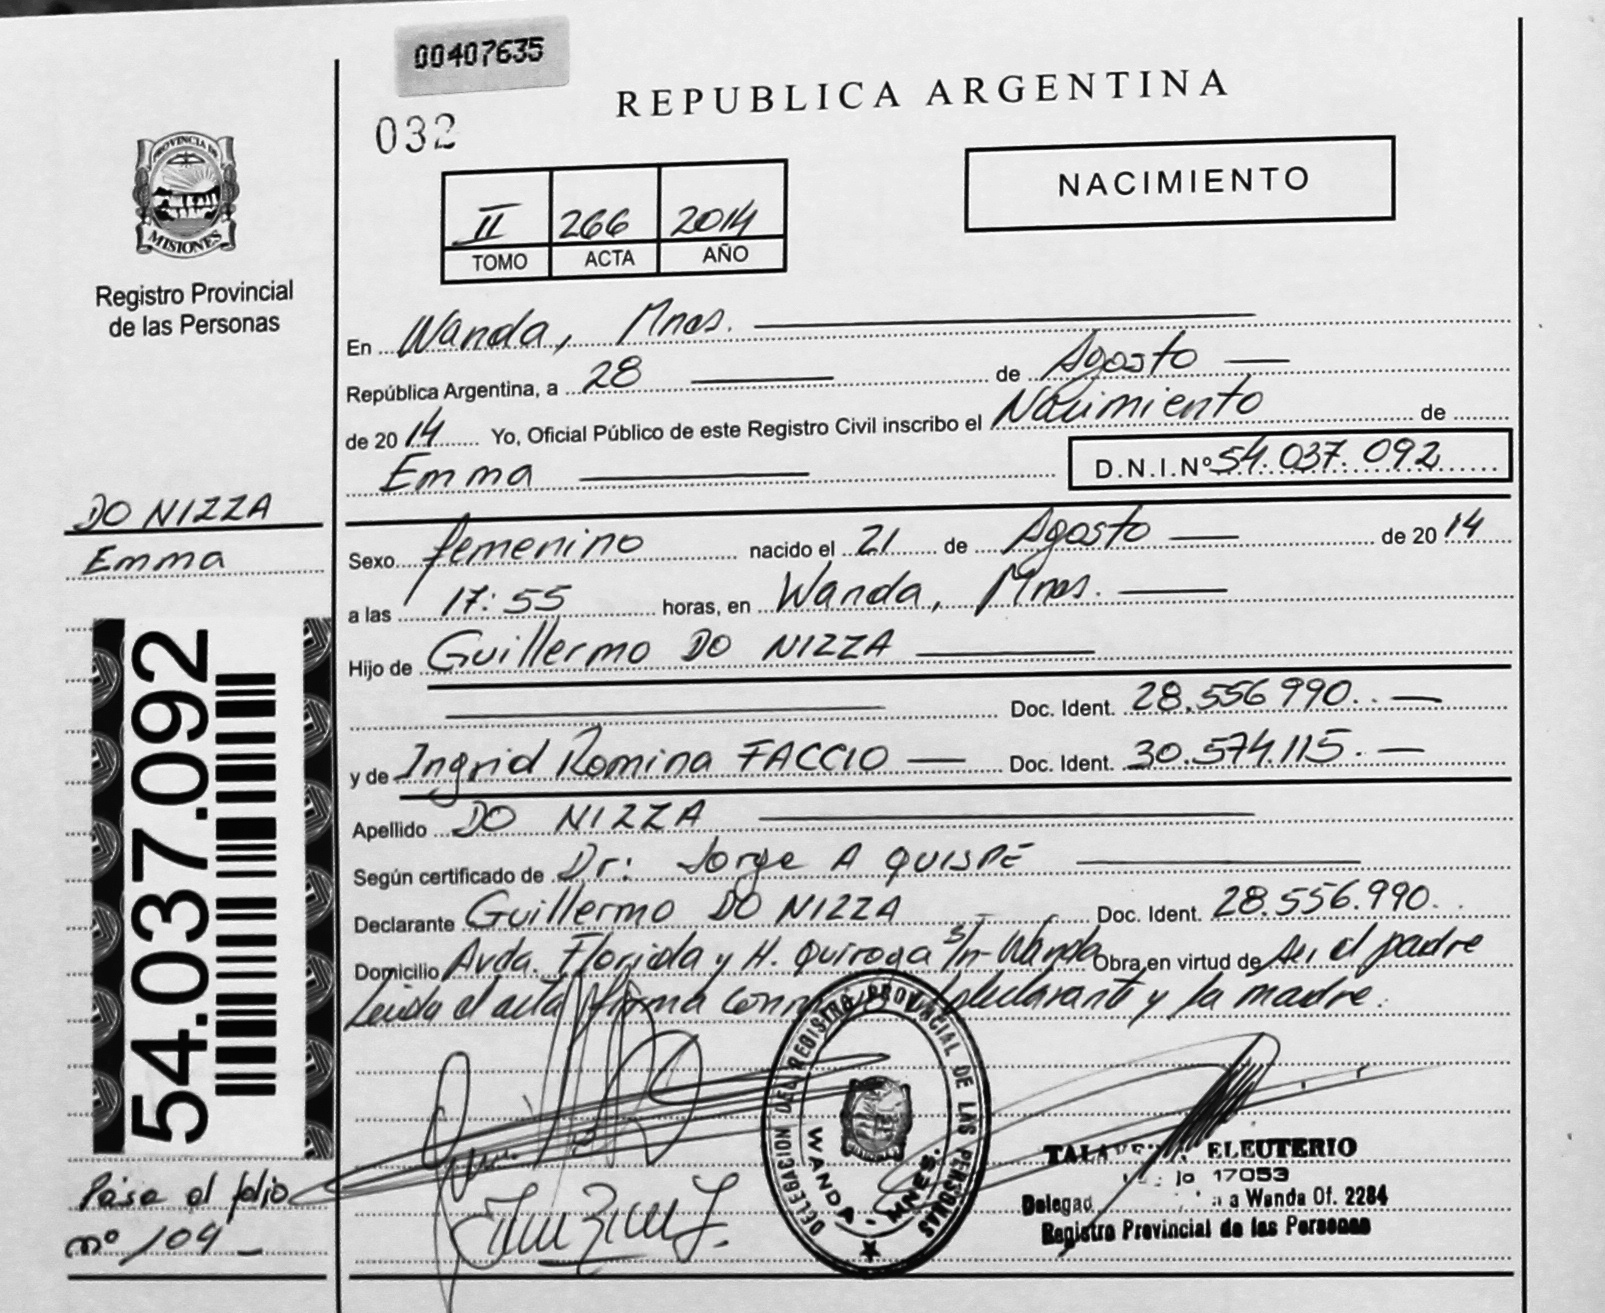 00407635
032
REPUBLICA ARGENTINA
NACIMIENTO
II 266 2014
TOMO ACTA AÑO
PROVINCIA DE
MISIONES
Registro Provincial
de las Personas
DO NIZZA
Emma
54.037.092
Pase al folio
nº 109
En Wanda, Mnes.
República Argentina, a 28 de Agosto
de 2014 Yo, Oficial Público de este Registro Civil inscribo el Nacimiento de
Emma D.N.I.Nº 54.037.092
Sexo femenino nacido el 21 de Agosto de 2014
a las 17:55 horas, en Wanda, Mnes.
Hijo de Guillermo DO NIZZA
Doc. Ident. 28.556.990.
y de Ingrid Romina FACCIO Doc. Ident. 30.574.115.
Apellido DO NIZZA
Según certificado de Dr: Jorge A QUISPE
Declarante Guillermo DO NIZZA Doc. Ident. 28.556.990.
Domicilio Avda. Florida y H. Quiroga s/n-Wanda Obra en virtud de ser el padre
Leida el acta firma declarante y la madre.
DELEGACION DEL REGISTRO PROVINCIAL DE LAS PERSONAS
WANDA - MNES.
ELEUTERIO
17053
a Wanda Of. 2284
Registro Provincial de las Personas